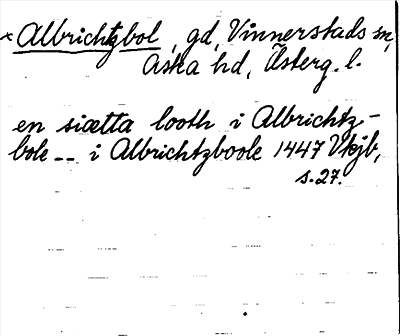 × Albrichtzbol, gd, Vinnerstads sn,
Aska hd, Österg. l.
en siætta looth i Albrichtz-
bole -- i Albrichtzboole 1447 Vkjb,
s. 27.